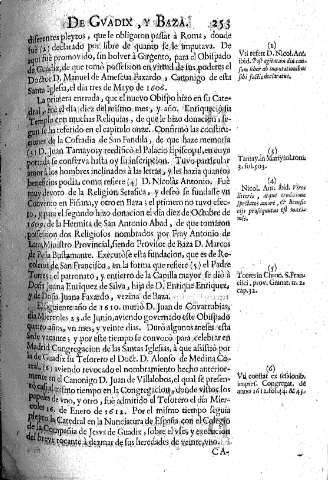 DE GVADIX, Y BAZA. 253
diferentes pleytos, que le obligaron passar à Roma, donde
fuè (2) declarado por libre de quanto se le imputava. De
aqui fue promovido, sin bolver à Gargento, para el Obispado
de Guadix, de que tomò possession en virtud de sus poderes el
Doctor D. Manuel de Amescua Faxardo, Canonigo de esta
Santa Iglesia, el dia tres de Mayo de 1606.
La primera entrada, que el nuevo Obispo hizo en su Cate-
dral, fuè el dia diez del mismo mes, y año. Enriqueciò su
Templo con muchas Reliquias, de que le hizo donacion, se-
gun se ha referido en el capitulo onze. Confirmò las constitu-
ciones de la Cofradia de San Fandila, de que haze memoria
(3) D. Juan Tamayo y reedificò el Palacio Episcopal, en cuya
portada se conserva hasta oy su inscripcion. Tuvo particular
amor à los hombres inclinados à las letras, y les hazia quantos
beneficios podia, como refiere (4) D. Nicolàs Antonio. Fuè
muy devoto de la Religion Serafica, y desseò se fundasse un
Convento en Fiñana, y otro en Baza: el primero no tuvo efec-
to, para el segundo hizo donacion el dia diez de Octubre de
1609. de la Hermita de San Antonio Abad, de que tomaron
possession dos Religiosos nombrados por Fray Antonio de
Lara, Ministro Provincial, siendo Provisor de Baza D. Marcos
de Peña Bullamante. Executòse esta fundacion, que es de Re-
coletos de San Francisco, en la forma que refiere (5) el Padre
Torres: el patronato, y entierro de la Capilla mayor se diò à
Doña Juana Enriquez de Silva, hija de D. Enrique Enriquez,
y de Doña Juana Faxardo, vezina de Baza.
El siguiente año de 1610. muriò D. Juan de Covarrubias,
dia Miercoles 23. de Junio, aviendo governado este Obispado
quatro años, un mes, y veinte dias. Durò algunos meses esta
Sede vacante; y por este tiempo se convocò para celebrar en
Madrid Congregacion de las Santas Iglesias, à que assistiò por
la de Guadix su Tesorero el Doct. D. Alonso de Medina Co-
ral, (6) aviendo revocado el nombramiento hecho anterior-
mente en el Canonigo D. Juan de Villalobos, el qual se presen-
tò casi al mismo tiempo en la Congregacion, donde vistos los
poderes de uno, y otro, fuè admitido el Tesorero el dia Mier-
coles 16. de Enero de 1612. Por el mismo tiempo seguia
pleyto la Catedral en la Nunciatura de España con el Colegio
de la Compañia de Jesus de Guadix, sobre el uso, y execucion
del breve tocante à dezmar de sus heredades de veinte, uno.
CA-
(2)
Vti refert D. Nicol. Ant.
ibid.
(3)
Tamay. in Martyrol. tom.
3. fol. 503.
(4)
Nicol. Ant. ibid.
(5)
Torres in Chron. S. Fran-
cisci, prov. Granat. tr. 2.
cap. 32.
(6)
Vti constat ex sessionib.
impress. Congregat. de
anno 1612. fol. 44. & 45.